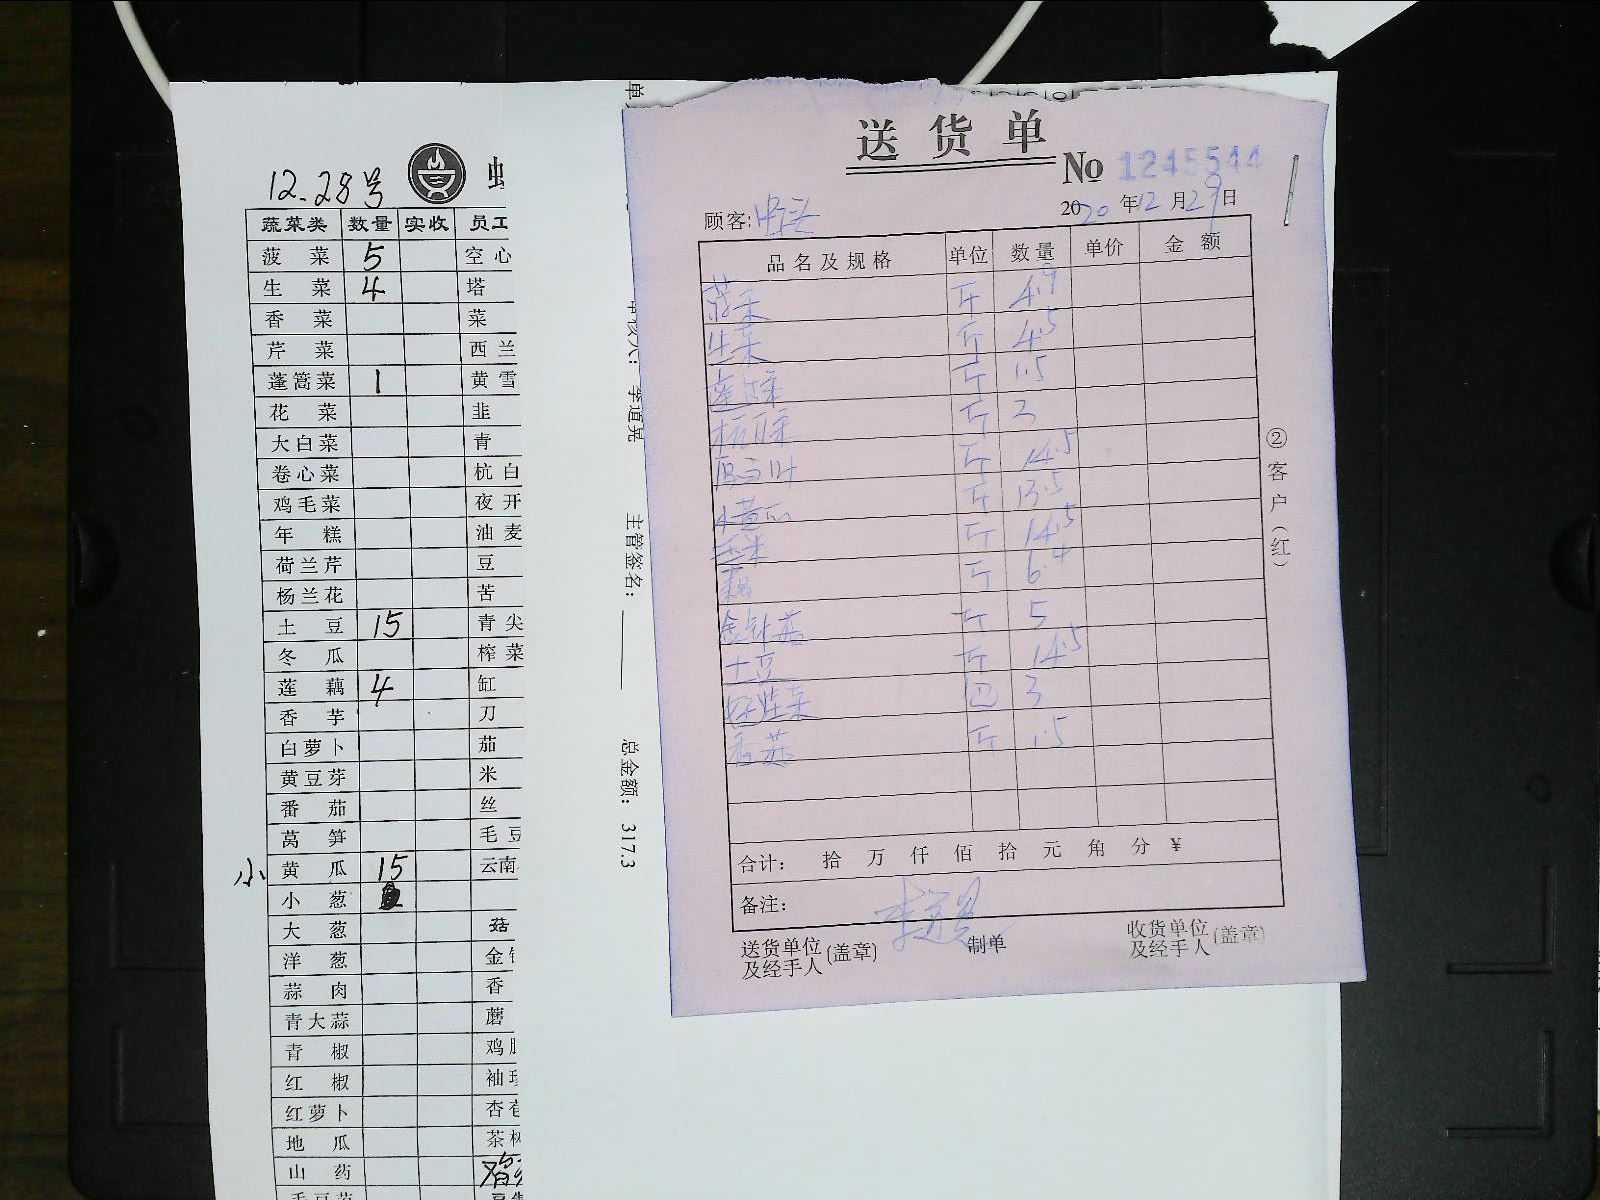 12.28号
蔬菜类 数量 实收 员工
菠菜 5 空心
生菜 4 塔
香菜 菜
芹菜 西兰
蓬蒿菜 1 黄雪
花菜 韭
大白菜 青
卷心菜 杭白
鸡毛菜 夜开
年糕 油麦
荷兰芹 豆
杨兰花 苦
土豆 15 青尖
冬瓜 榨菜
莲藕 4 缸
香芋 刀
白萝卜 茄
黄豆芽 米
番茄 丝
莴笋 毛豆
小 黄瓜 15 云南
小葱
大葱 菇
洋葱 金
蒜肉 香
青大蒜 蘑
青椒 鸡
红椒 袖
红萝卜 杏
地瓜 茶
山药
主管签名:
总金额: 317.3
送货单
No 1245544
顾客:
2020年12月29日
品名及规格 单位 数量 单价 金额
菠菜 斤 4.9
生菜 斤 4.5
蓬蒿菜 斤 1.5
斤 3
斤 14.5
小黄瓜 斤 13.5
玉米 斤 14.5
藕 斤 6.4
金针菇 斤 5
土豆 斤 14.5
娃娃菜 包 3
香菇 斤 1.5
合计: 拾 万 仟 佰 拾 元 角 分 ¥
备注:
送货单位及经手人(盖章) 制单 收货单位及经手人(盖章)
②客户(红)